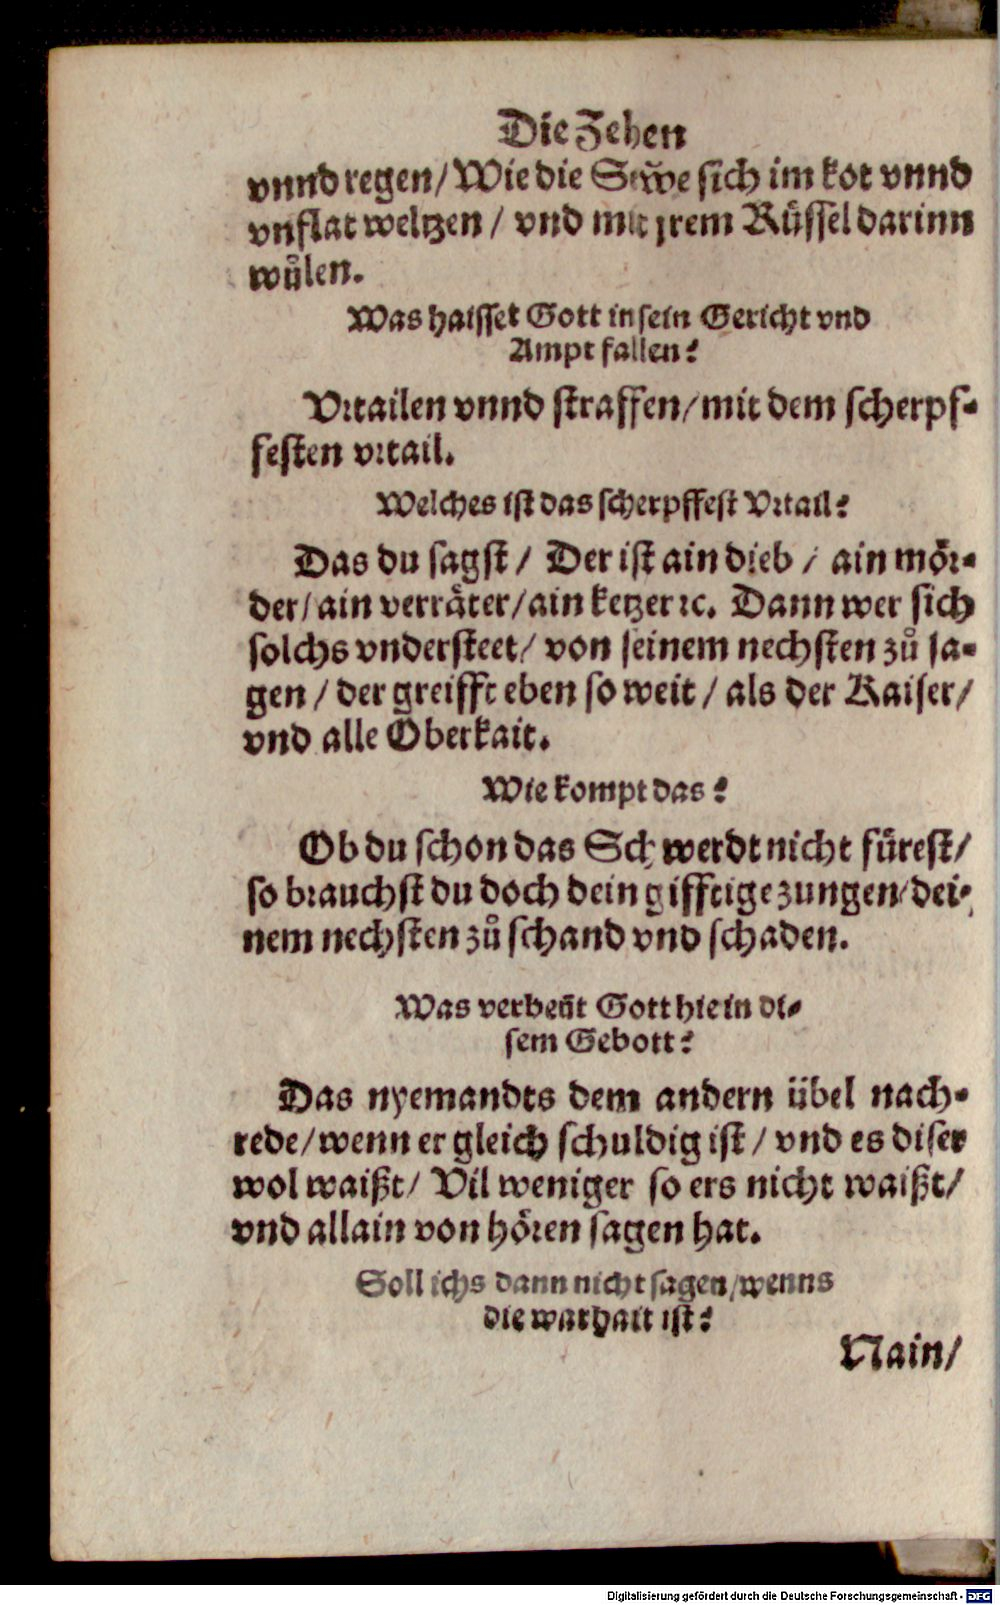 Die Zehen
vnnd regen/ Wie die Sewe sich im kot vnnd
vnflat weltzen / vnd mit jrem Rüssel darinn
wůlen.
Was haisset Gott in sein Gericht vnd
Ampt fallen?
Vrtailen vnnd straffen/ mit dem scherpf-
festen vrtail.
Welches ist das scherpffest Vrtail?
Das du sagst / Der ist ain dieb / ain mör-
der/ ain verräter/ ain ketzer ꝛc. Dann wer sich
solchs vndersteet/ von seinem nechsten zů sa-
gen / der greifft eben so weit / als der Kaiser/
vnd alle Oberkait.
Wie kompt das?
Ob du schon das Schwerdt nicht fürest/
so brauchst du doch dein gifftige zungen/ dei-
nem nechsten zů schand vnd schaden.
Was verbeüt Gott hie in di-
sem Gebott?
Das nyemandts dem andern übel nach-
rede/ wenn er gleich schuldig ist / vnd es diser
wol waißt/ Vil weniger so ers nicht waißt/
vnd allain von hören sagen hat.
Soll ichs dann nicht sagen/ wenns
die warhait ist?
Nain/
Digitalisierung gefördert durch die Deutsche Forschungsgemeinschaft - DFG